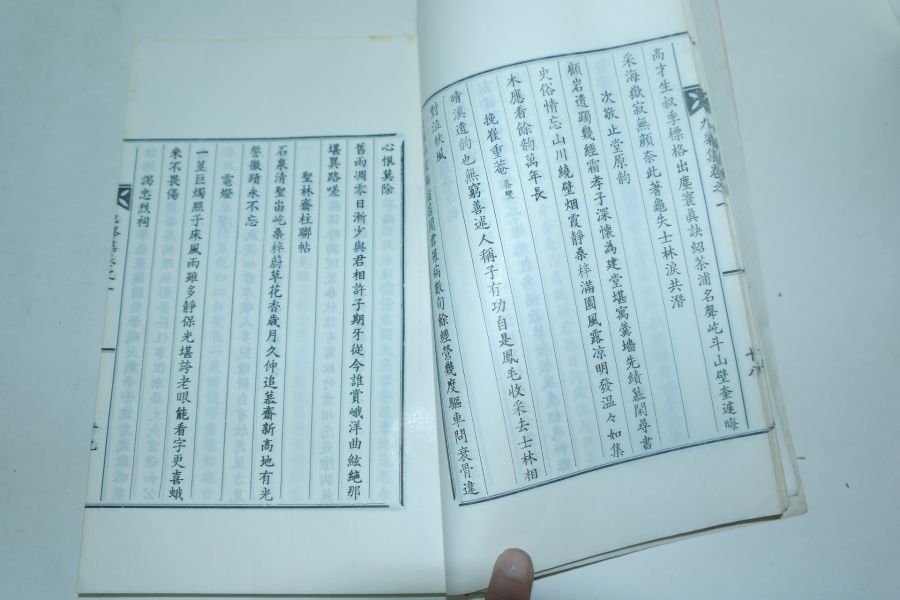 高才生叔季標格出塵寰真訣紹茶浦名聲屹斗山壁奎遽晦
采海嶽寂無顔奈此著龜失士林淚共潸
次敬止堂原韵
顧岩遺躅幾經霜孝子深懷為建堂堪寓羹墙先績慕閑尋書
史俗情忘山川繞壁烟霞靜桑梓滿園風露凉明發温々如集
木應看餘韵萬年長
挽崔重菴
晴溪遺韵也無窮善述人稱子有功自是鳳毛收采去士林相
對泣秋風
病數旬餘經營幾度驅車問衰骨違
心恨莫除
舊雨凋零日漸少與君相許子期牙從今誰賞峨洋曲絃絶那
堪異路嗟
聖林齋柱聯帖
石泉清聖峀屹桑梓蔚草花香歳月久仲追慕齋新高地有光
警徽蹟永不忘
電燈
一莖巨燭照于床風雨雖多靜保光堪誇老眼能看字更喜蛾
來不畏傷
謁忠烈祠
十八